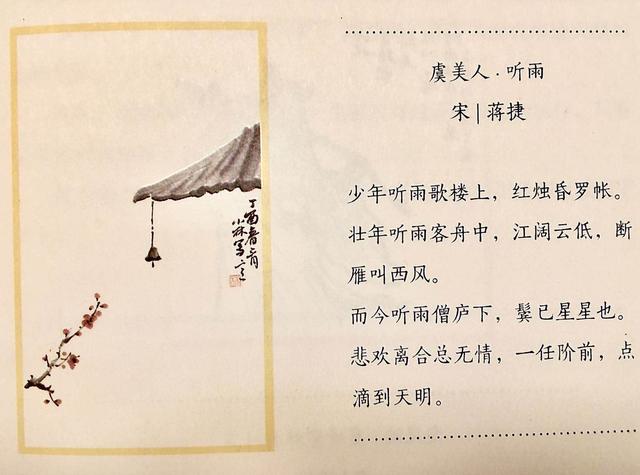 虞美人·听雨
宋|蒋捷
少年听雨歌楼上，红烛昏罗帐。
壮年听雨客舟中，江阔云低，断
雁叫西风。
而今听雨僧庐下，鬓已星星也。
悲欢离合总无情，一任阶前，点
滴到天明。
丁酉春二月
小林写之